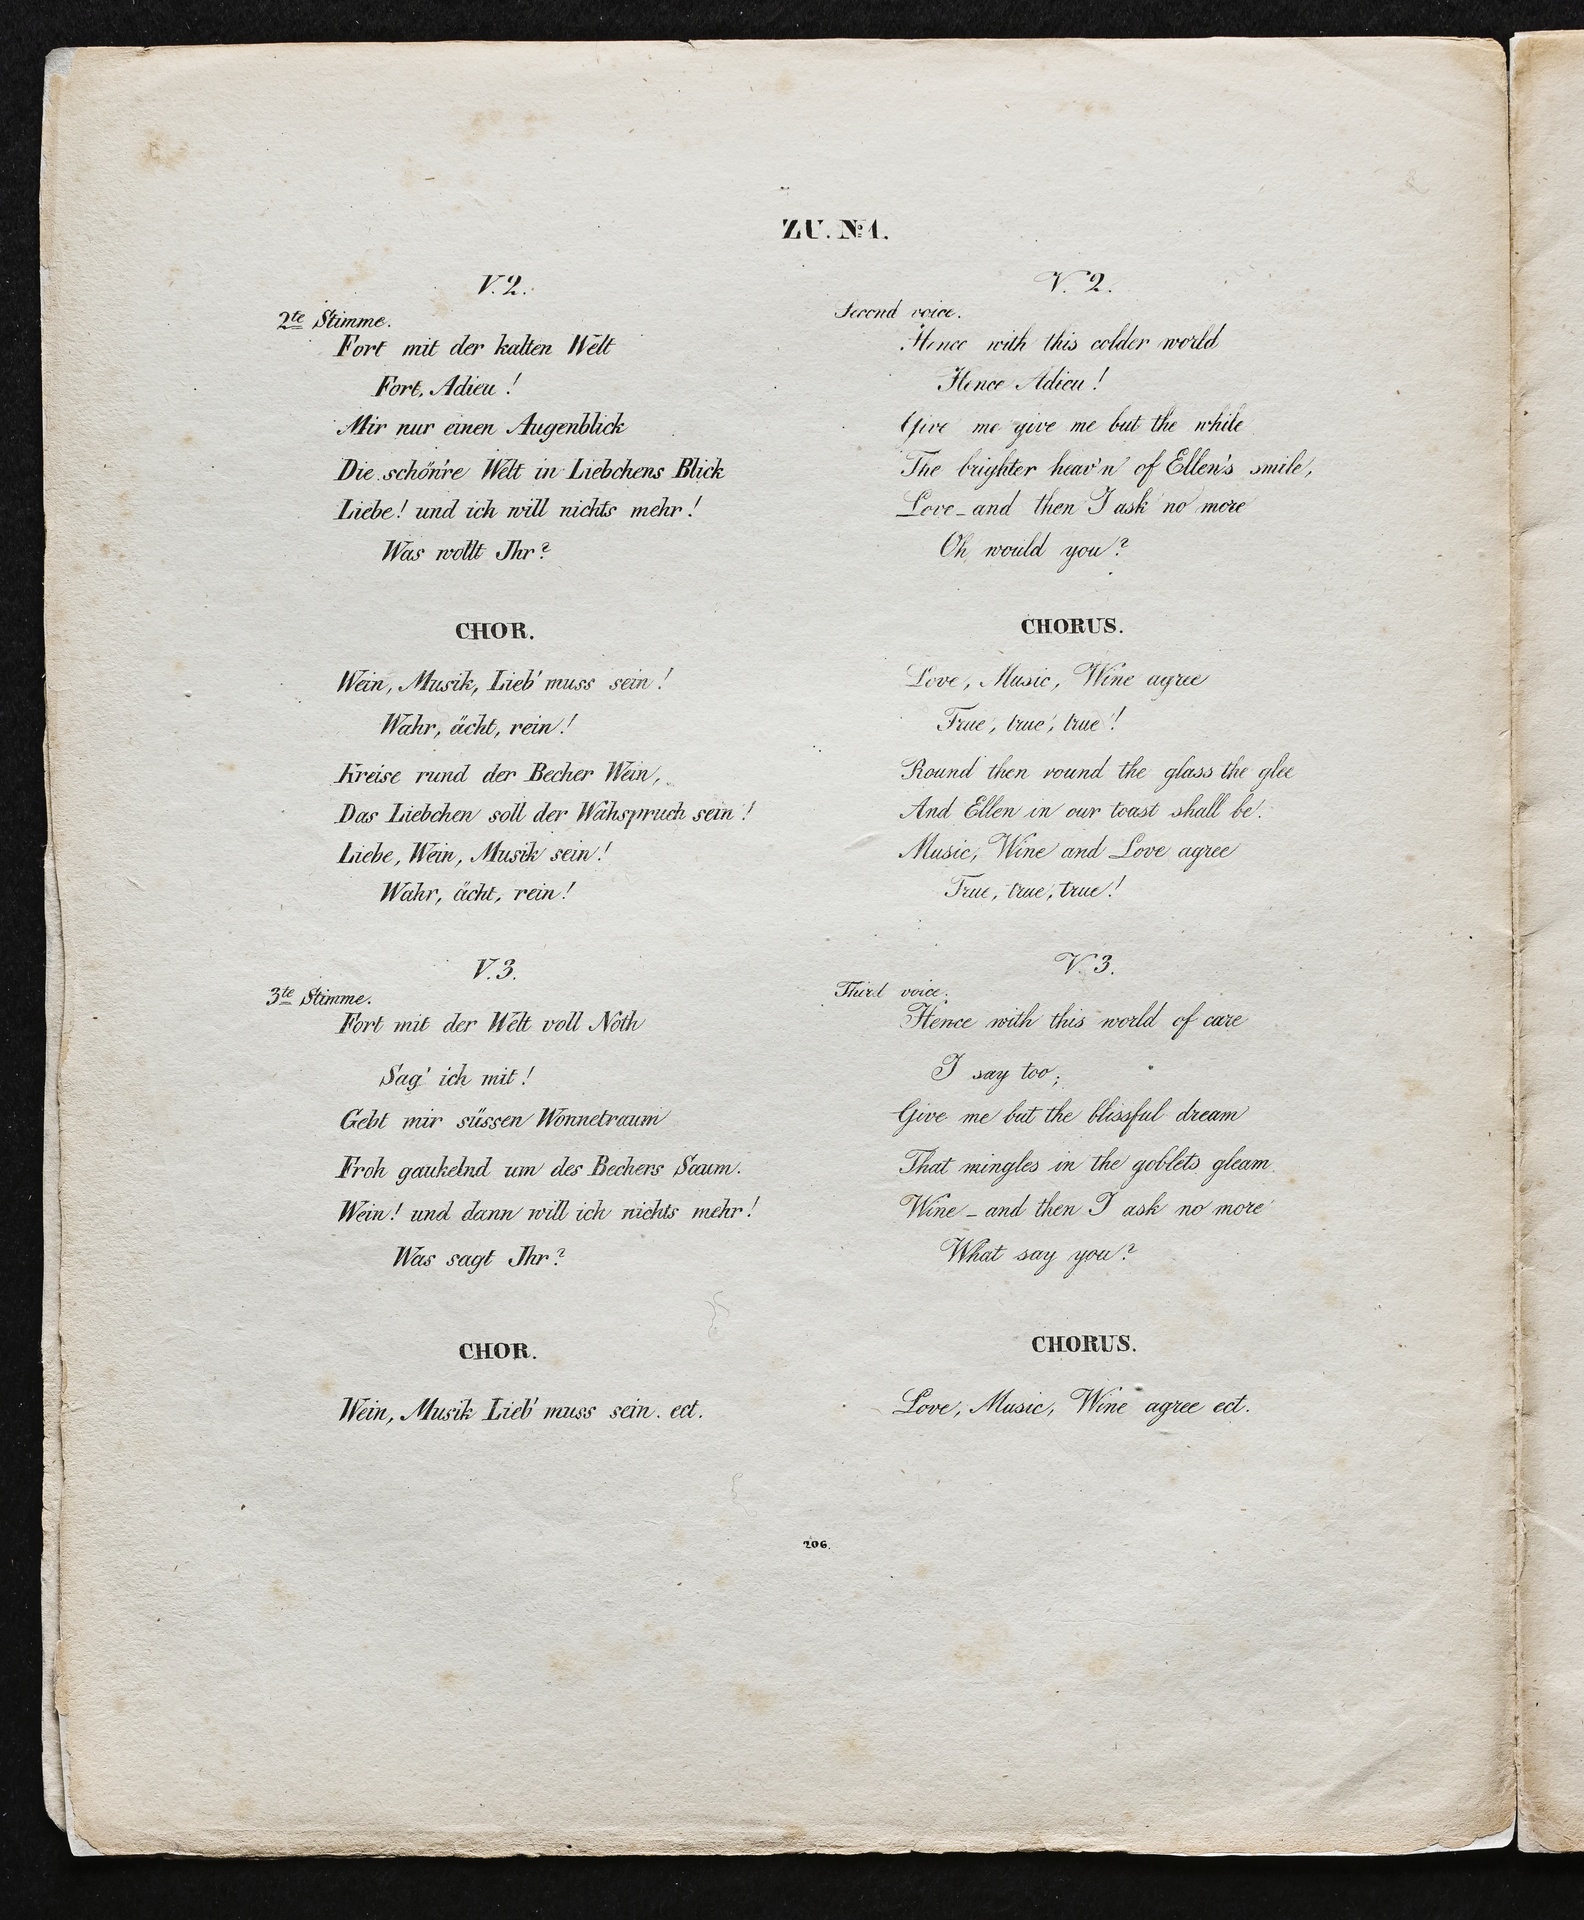 ZU. No 1.
V. 2.
2te Stimme.
Fort mit der kalten Welt
Fort, Adieu!
Mir nur einen Augenblick
Die schön're Welt in Liebchens Blick
Liebe! und ich will nichts mehr!
Was wollt Ihr?
CHOR.
Wein, Musik, Lieb' muss sein!
Wahr, ächt, rein!
Kreise rund der Becher Wein,
Das Liebchen soll der Wahspruch sein!
Liebe, Wein, Musik sein!
Wahr, ächt, rein!
V. 3.
3te Stimme.
Fort mit der Welt voll Noth
Sag' ich mit!
Gebt mir süssen Wonnetraum
Froh gaukelnd um des Bechers Saum.
Wein! und dann will ich nichts mehr!
Was sagt Ihr?
CHOR.
Wein, Musik Lieb' muss sein. ect.
V. 2.
Second voice.
Hence with this colder world
Hence Adieu!
Give me give me but the while
The brighter heav'n of Ellen's smile,
Love _ and then I ask no more
Oh would you?
CHORUS.
Love, Music, Wine agree
True, true, true!
Round then round the glass the glee
And Ellen in our toast shall be!
Music, Wine and Love agree
True, true, true!
V. 3.
Third voice.
Hence with this world of care
I say too;
Give me but the blissful dream
That mingles in the goblets gleam.
Wine _ and then I ask no more
What say you?
CHORUS.
Love, Music, Wine agree ect.
206.